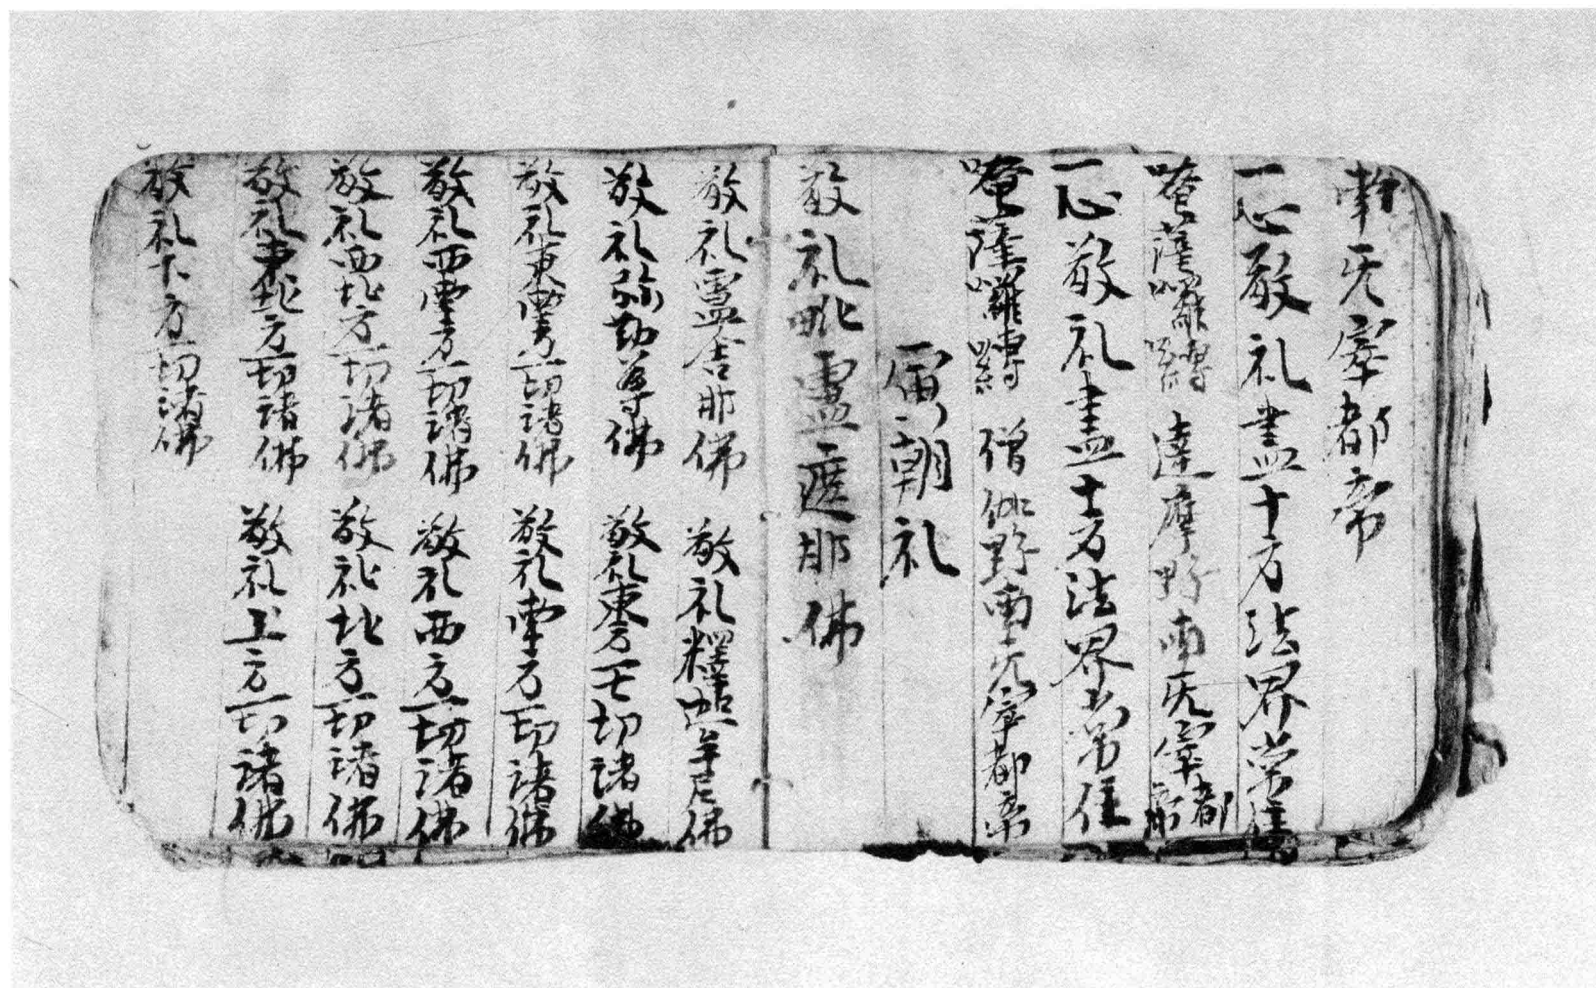 南无率都帝
一心敬礼盡十方法界常住
唵薩囉嚩達摩野南无率都帝
一心敬礼盡十方法界常住
唵薩囉嚩僧伽野南无率都帝
寅朝礼
敬礼毗盧遮那佛
敬礼盧舍那佛 敬礼釋迦牟尼佛
敬礼弥勒尊佛 敬礼東方一切諸佛
敬礼東南方一切諸佛 敬礼南方一切諸佛
敬礼西南方一切諸佛 敬礼西方一切諸佛
敬礼西北方一切諸佛 敬礼北方一切諸佛
敬礼東北方一切諸佛 敬礼上方一切諸佛
敬礼下方一切諸佛